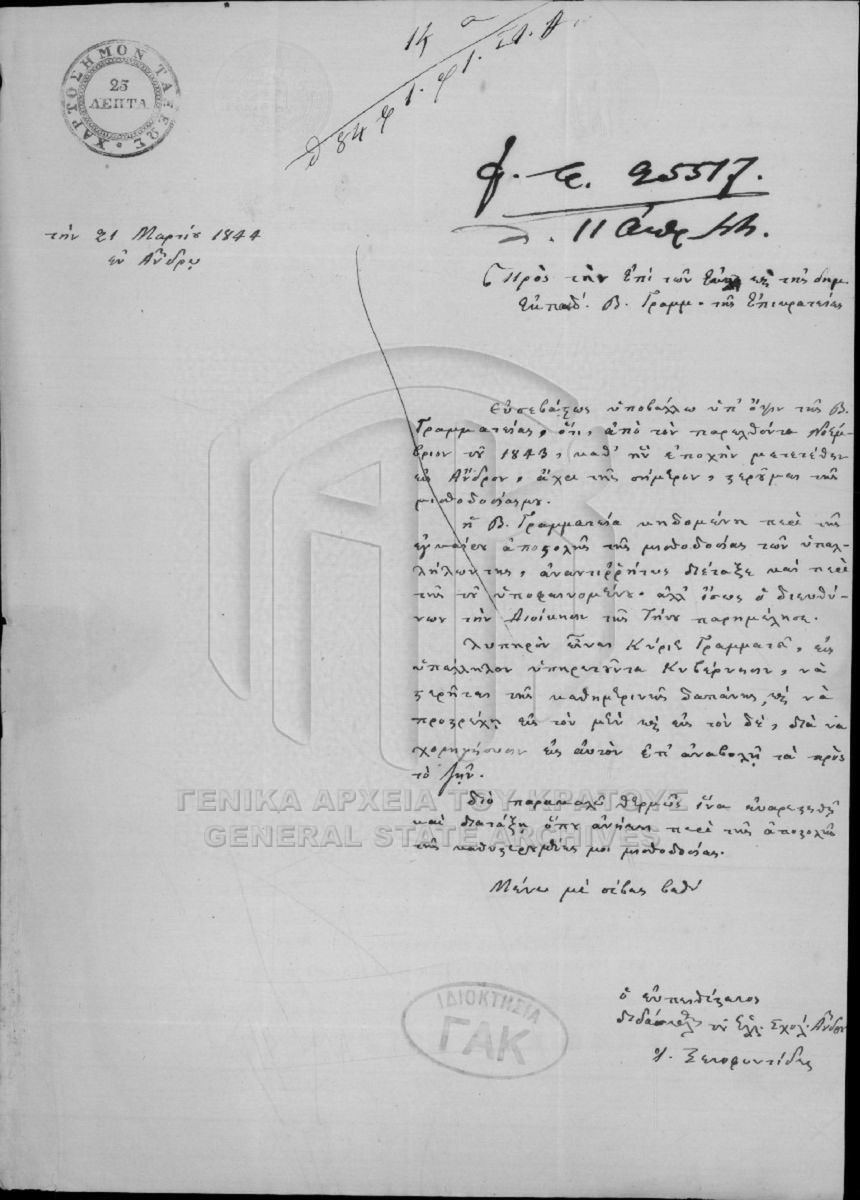 ΧΑΡΤΟΣΗΜΟΝ ΤΑΞΕΩΣ
25
ΛΕΠΤΑ
25517.
11 Ἀπρ 44.
τὴν 21 Μαρτίου 1844
ἐν Ἄνδρῳ
Πρὸς τὴν ἐπὶ τῶν τῆς δημ.
Ἐκπαιδ. Β. Γραμμ. τῆς Ἐπικρατείας
Εὐσεβάστως ὑποβάλλω ὑπ' ὄψιν τῆς Β.
Γραμματείας, ὅτι, ἀπὸ τὸν παρελθόντα Νοέμ
βριον τοῦ 1843, καθ' ἣν ἐποχὴν μετετέθην
εἰς Ἄνδρον, ἄχρι τῆς σήμερον, στεροῦμαι τῆς
μισθοδοσίας μου.
ἡ Β. Γραμματεία κηδομένη περὶ τῆς
ἐγκαίρου ἀποστολῆς τῆς μισθοδοσίας τῶν ὑπαλ
λήλων της, ἀναντιρρήτως διέταξε καὶ περὶ
τῆς τοῦ ὑποφαινομένου· ἀλλ' ἴσως ὁ διευθύ
νων τὴν Διοίκησιν τῆς Τήνου παρημέλησε.
Λυπηρὸν εἶναι Κύριε Γραμματεῦ, εἰς
ὑπάλληλον ὑπηρετοῦντα Κυβέρνησιν, νὰ
στερῆται τῆς καθημερινῆς δαπάνης, καὶ νὰ
προστρέχῃ εἰς τὸν μὲν καὶ εἰς τὸν δὲ, διὰ νὰ
χορηγήσωσιν εἰς αὐτὸν ἐπ' ἀναβολῇ τὰ πρὸς
τὸ ζῆν.
Διὸ παρακαλῶ θερμῶς ἵνα εὐαρεστηθῇ
καὶ διατάξῃ ὅπου ἀνήκει περὶ τῆς ἀποστολῆς
τῆς καθυστερηθείσης μοι μισθοδοσίας.
Μένω μὲ σέβας βαθύ
ὁ εὐπειθέστατος
διδάσκαλος τοῦ Ἑλλ. Σχολ. Ἄνδρου
Ξενοφωντίδης
ΓΕΝΙΚΑ ΑΡΧΕΙΑ ΤΟΥ ΚΡΑΤΟΥΣ
GENERAL STATE ARCHIVES
ΙΔΙΟΚΤΗΣΙΑ
ΓΑΚ